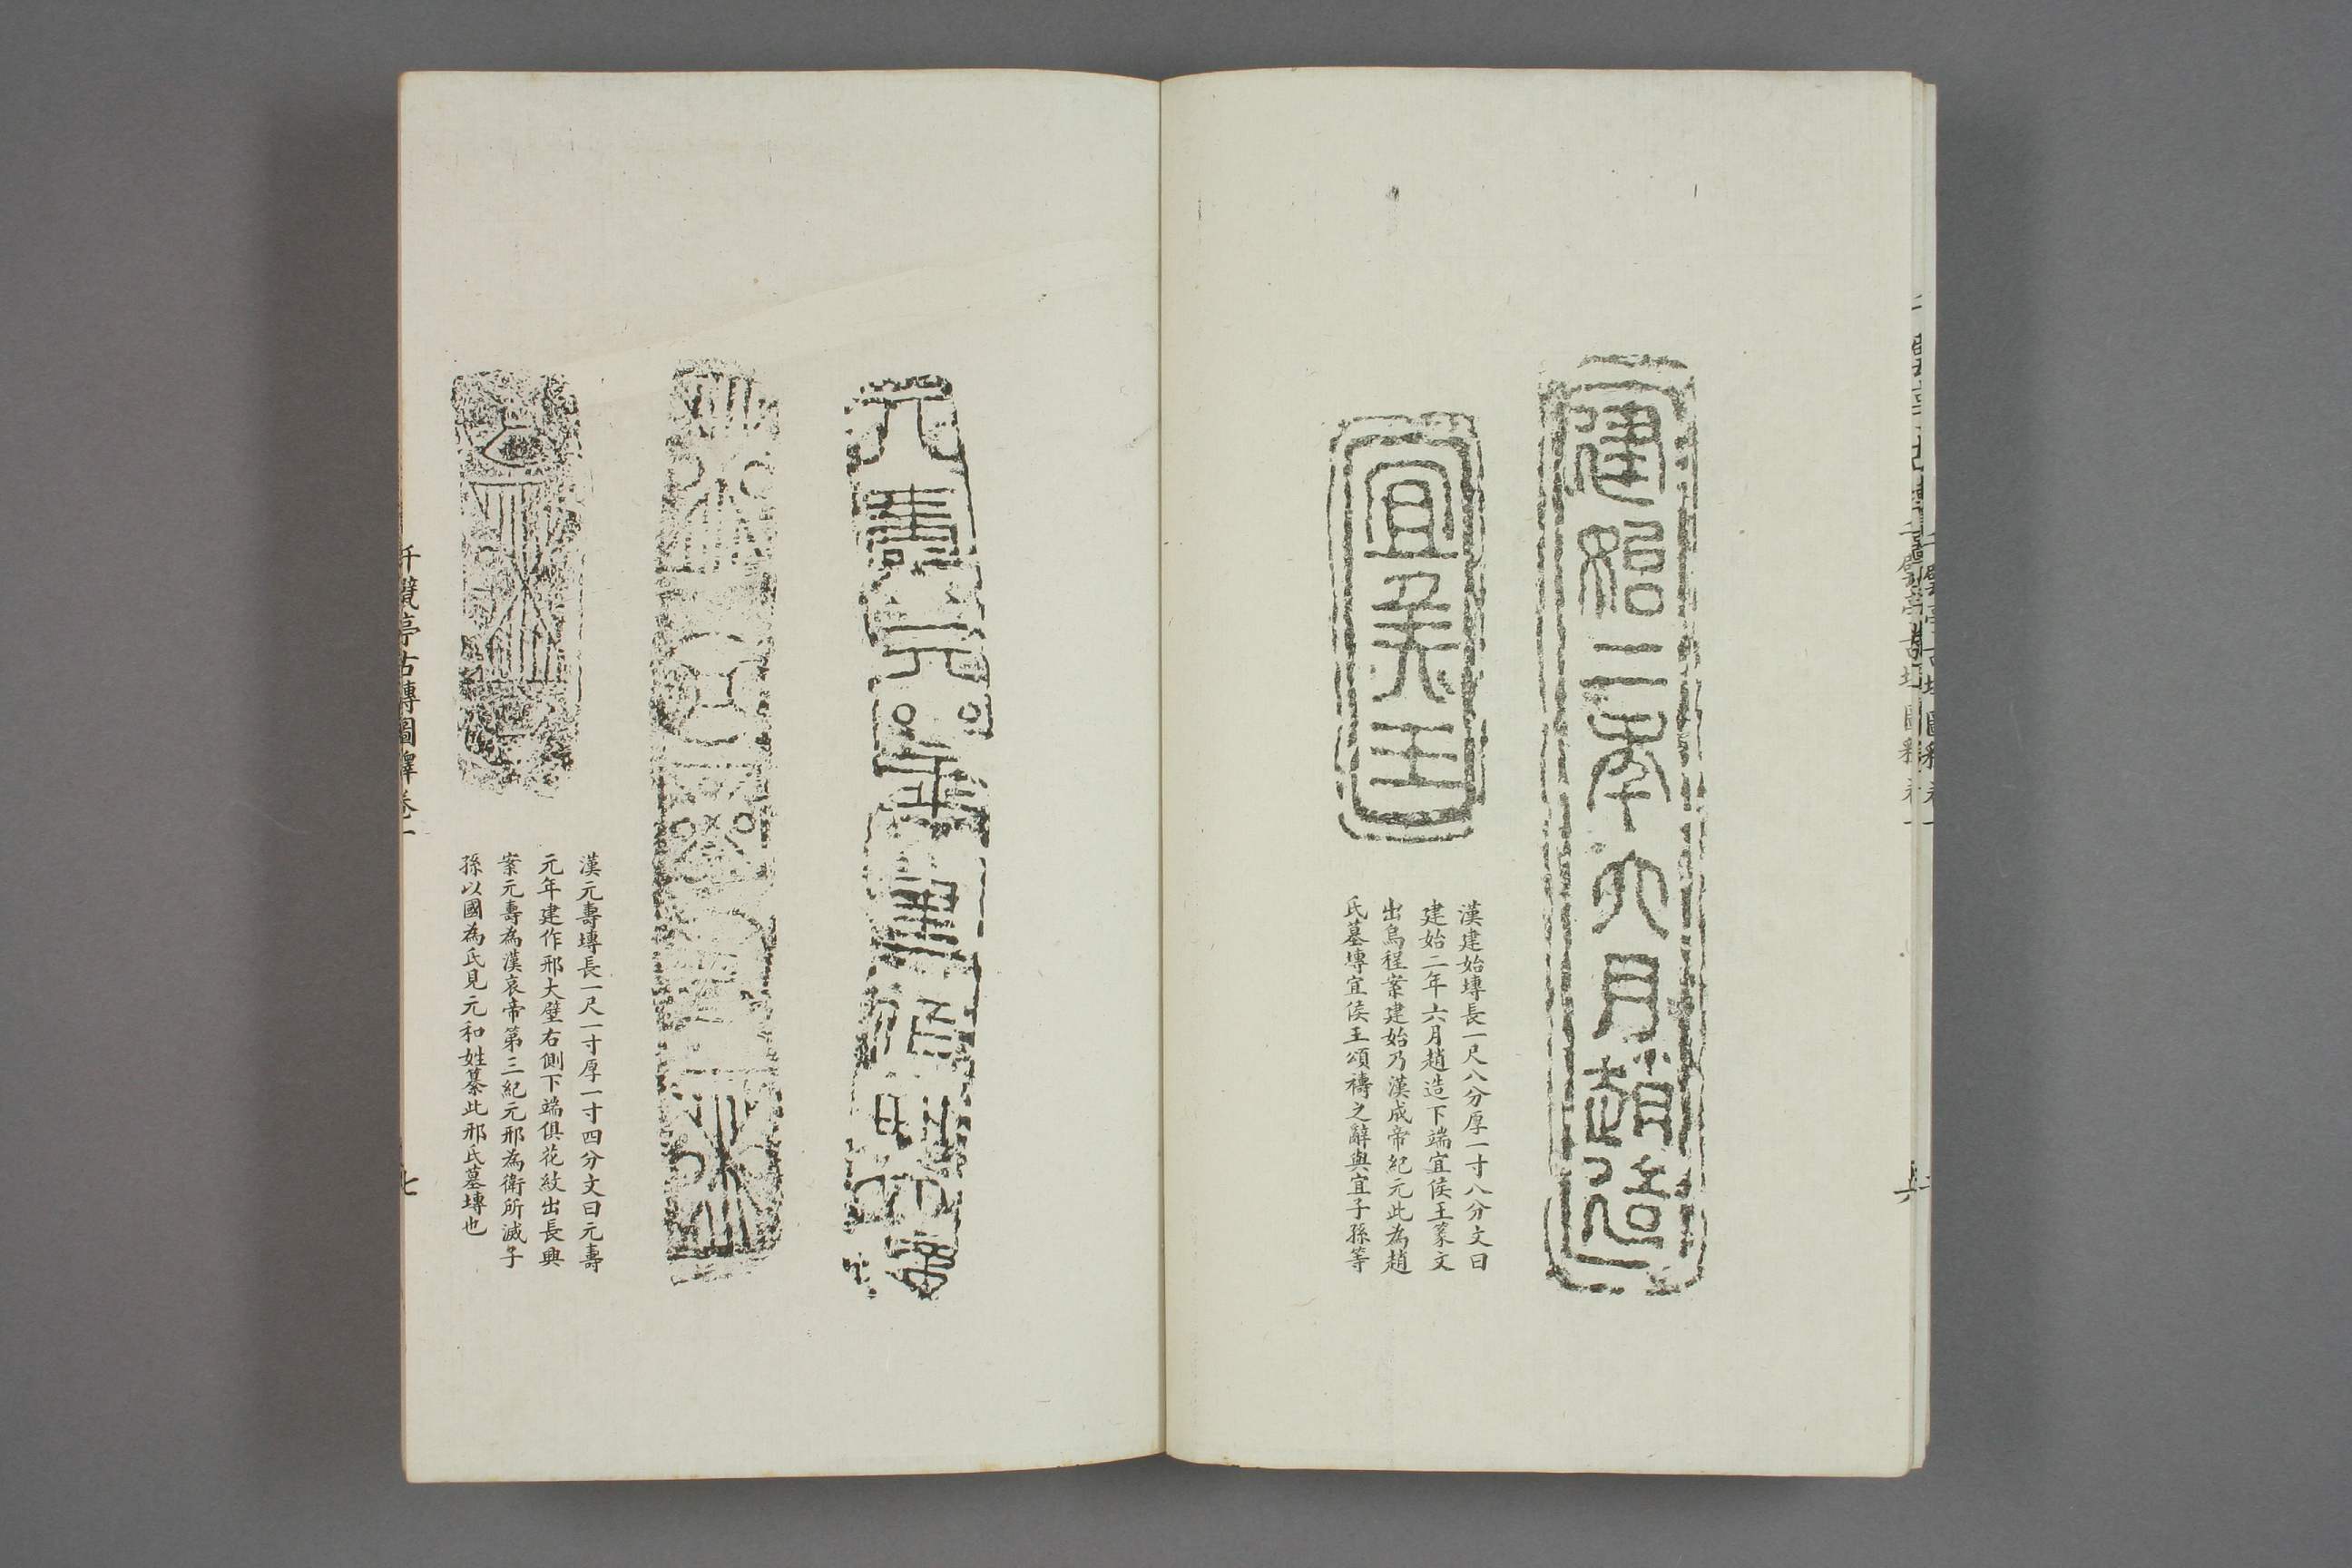 建始二年六月趙造
宜矦王
漢建始塼長一尺八分厚一寸八分文曰
建始二年六月趙造下端宜侯王篆文
出烏程案建始乃漢成帝紀元此為趙
氏墓塼宜侯王頌禱之辭與宜子孫等
元壽元年建作邢
漢元壽塼長一尺一寸厚一寸四分文曰元壽
元年建作邢大壁右側下端俱花紋出長興
案元壽為漢哀帝第二紀元邢為衛所滅子
孫以國為氏見元和姓纂此邢氏墓塼也
千甓亭古塼圖釋卷一
七